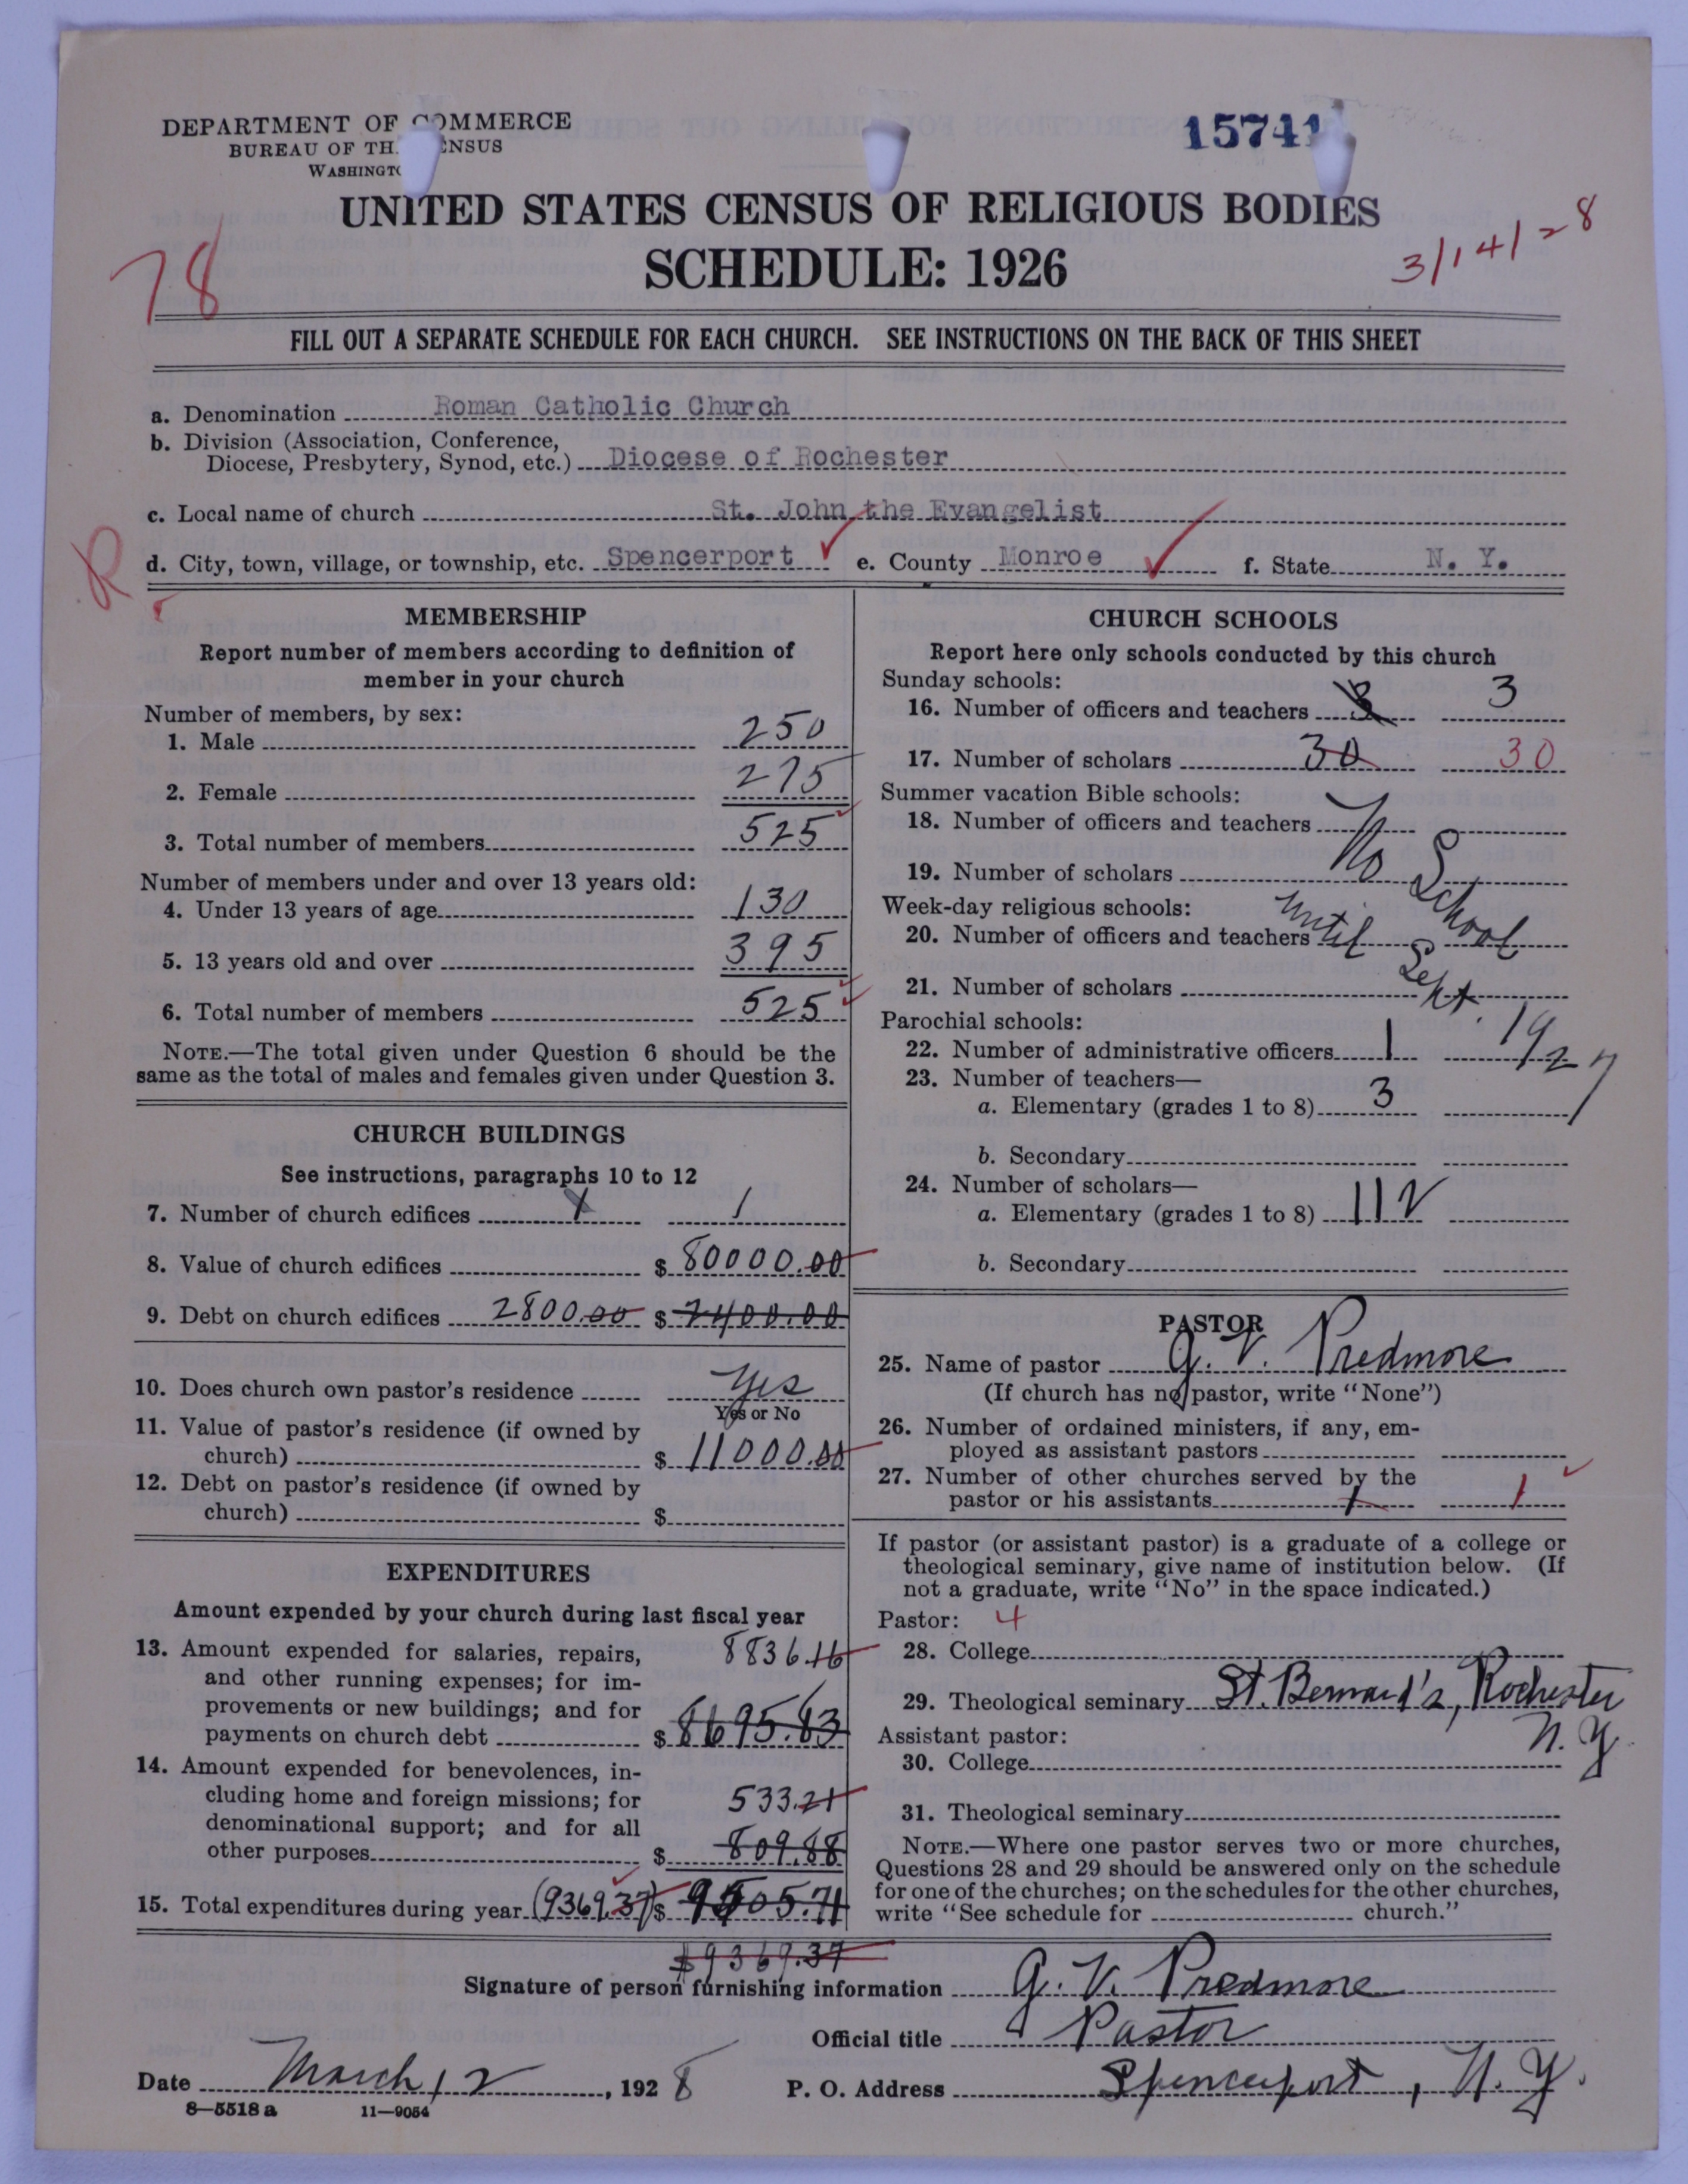 DEPARTMENT OF COMMERCE
BUREAU OF THE CENSUS
WASHINGTON
15741
UNITED STATES CENSUS OF RELIGIOUS BODIES
SCHEDULE: 1926
78
3/14/28
FILL OUT A SEPARATE SCHEDULE FOR EACH CHURCH. SEE INSTRUCTIONS ON THE BACK OF THIS SHEET
a. Denomination Roman Catholic Church
b. Division (Association, Conference,
Diocese, Presbytery, Synod, etc.) Diocese of Rochester
c. Local name of church St. John the Evangelist
R
d. City, town, village, or township, etc. Spencerport e. County Monroe f. State N. Y.
MEMBERSHIP
Report number of members according to definition of
member in your church
Number of members, by sex:
1. Male 250
2. Female 275
3. Total number of members 525
Number of members under and over 13 years old:
4. Under 13 years of age 130
5. 13 years old and over 395
6. Total number of members 525
NOTE.—The total given under Question 6 should be the
same as the total of males and females given under Question 3.
CHURCH BUILDINGS
See instructions, paragraphs 10 to 12
7. Number of church edifices 1 1
8. Value of church edifices $ 80000.00
9. Debt on church edifices 2800.00 $ 2400.00
10. Does church own pastor's residence Yes
Yes or No
11. Value of pastor's residence (if owned by
church) $ 11000.00
12. Debt on pastor's residence (if owned by
church) $
EXPENDITURES
Amount expended by your church during last fiscal year
13. Amount expended for salaries, repairs, 8836.16
and other running expenses; for im-
provements or new buildings; and for
payments on church debt $ 8695.83
14. Amount expended for benevolences, in-
cluding home and foreign missions; for 533.21
denominational support; and for all
other purposes $ 809.88
15. Total expenditures during year (9369.37) $ 9505.71
$9369.37
CHURCH SCHOOLS
Report here only schools conducted by this church
Sunday schools:
16. Number of officers and teachers 3 3
17. Number of scholars 30 30
Summer vacation Bible schools:
18. Number of officers and teachers No School
19. Number of scholars
Week-day religious schools:
20. Number of officers and teachers until Sept. 1927
21. Number of scholars
Parochial schools:
22. Number of administrative officers 1
23. Number of teachers—
a. Elementary (grades 1 to 8) 3
b. Secondary
24. Number of scholars—
a. Elementary (grades 1 to 8) 112
b. Secondary
PASTOR
25. Name of pastor G. V. Predmore
(If church has no pastor, write "None")
26. Number of ordained ministers, if any, em-
ployed as assistant pastors
27. Number of other churches served by the
pastor or his assistants 1 1
If pastor (or assistant pastor) is a graduate of a college or
theological seminary, give name of institution below. (If
not a graduate, write "No" in the space indicated.)
Pastor: 4
28. College
29. Theological seminary St. Bernard's, Rochester
N. Y.
Assistant pastor:
30. College
31. Theological seminary
NOTE.—Where one pastor serves two or more churches,
Questions 28 and 29 should be answered only on the schedule
for one of the churches; on the schedules for the other churches,
write "See schedule for church."
Signature of person furnishing information G. V. Predmore
Official title Pastor
Date March 12, 1928 P. O. Address Spencerport, N. Y.
8—5518 a 11—9054